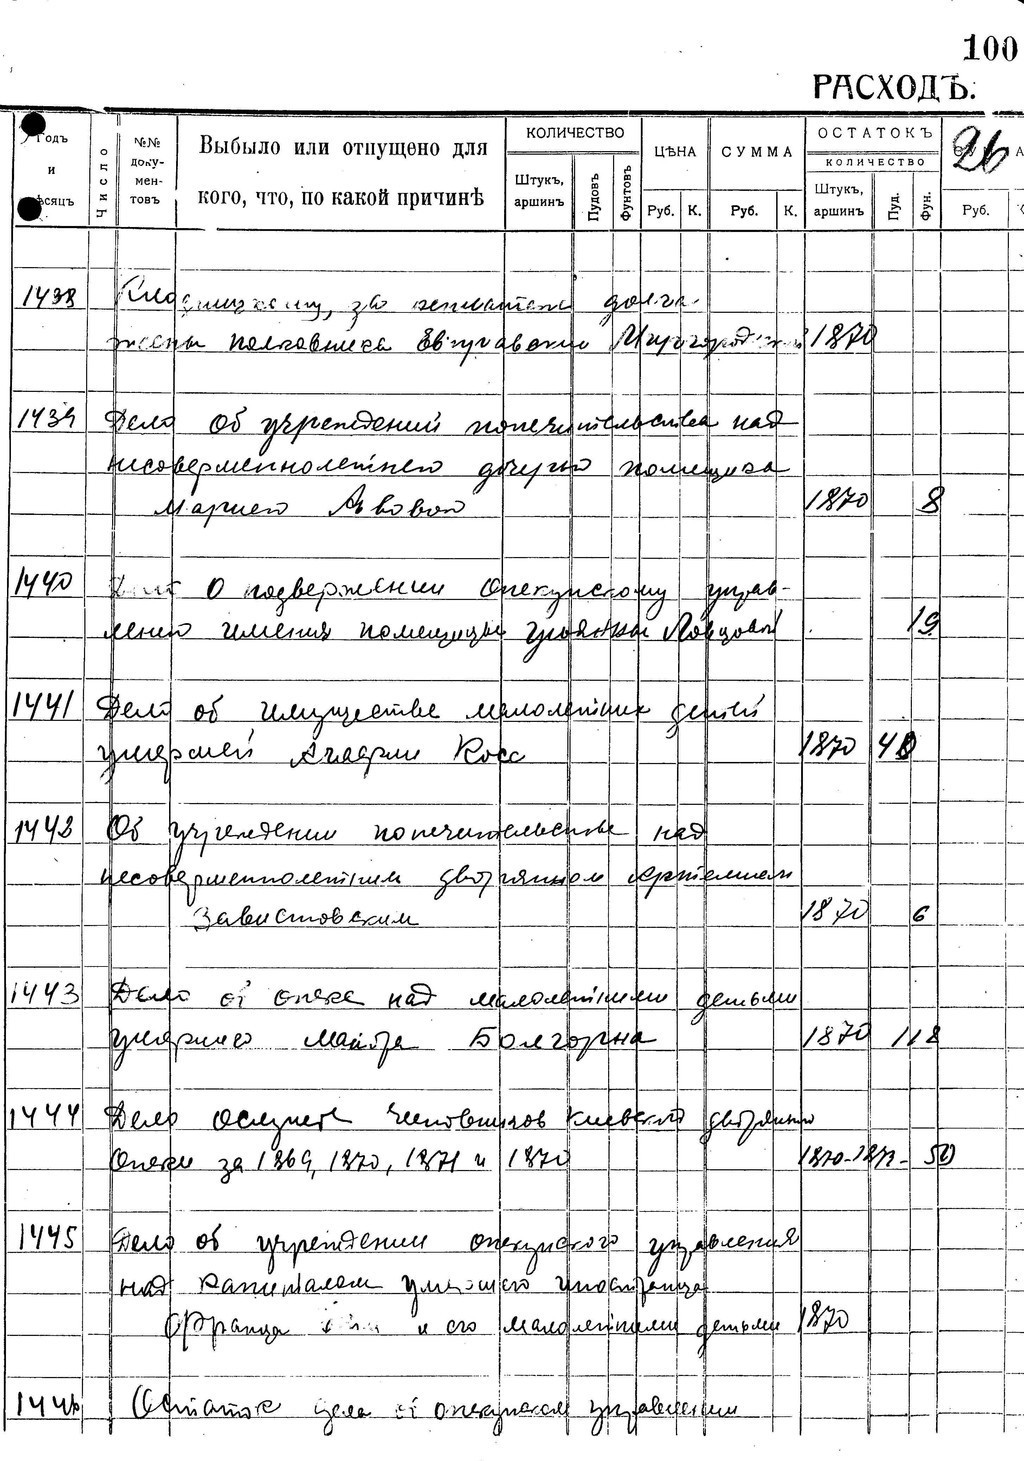 100
РАСХОДЪ.
26
Годъ и мѣсяцъ
Число
№№ документовъ
Выбыло или отпущено для
кого, что, по какой причинѣ
КОЛИЧЕСТВО
Штукъ, аршинъ
Пудовъ
Фунтовъ
ЦѢНА
Руб. К.
СУММА
Руб. К.
ОСТАТОКЪ
КОЛИЧЕСТВО
Штукъ, аршинъ
Пуд.
Фун.
Руб.
1438 за долга
жены полковника 1870
1439 Дело Об учреждений попечительства над
несовершеннолетнею дочерью помещика
Мариею Львовой 1870 8
1440 О подвержении опекунскому управ-
лению имения помещицы 19
1441 Дело об имуществе малолетних детей
умершей Косс 1870
1442 Об учреждении попечительства над
несовершеннолетним дворянином
Завистовским 1870 6
1443 Дело об опеке над малолетними детьми
умершего майора 1870 118
1444 Дело чиновников Киевской дворянской
опеки за 1869, 1870, 1871 и 1870 50
1445 Дело об учреждении опекунского управления
над капиталом умершего иностранца
Франца и его малолетними детьми 1870
Остаток дела об опекунском управлении